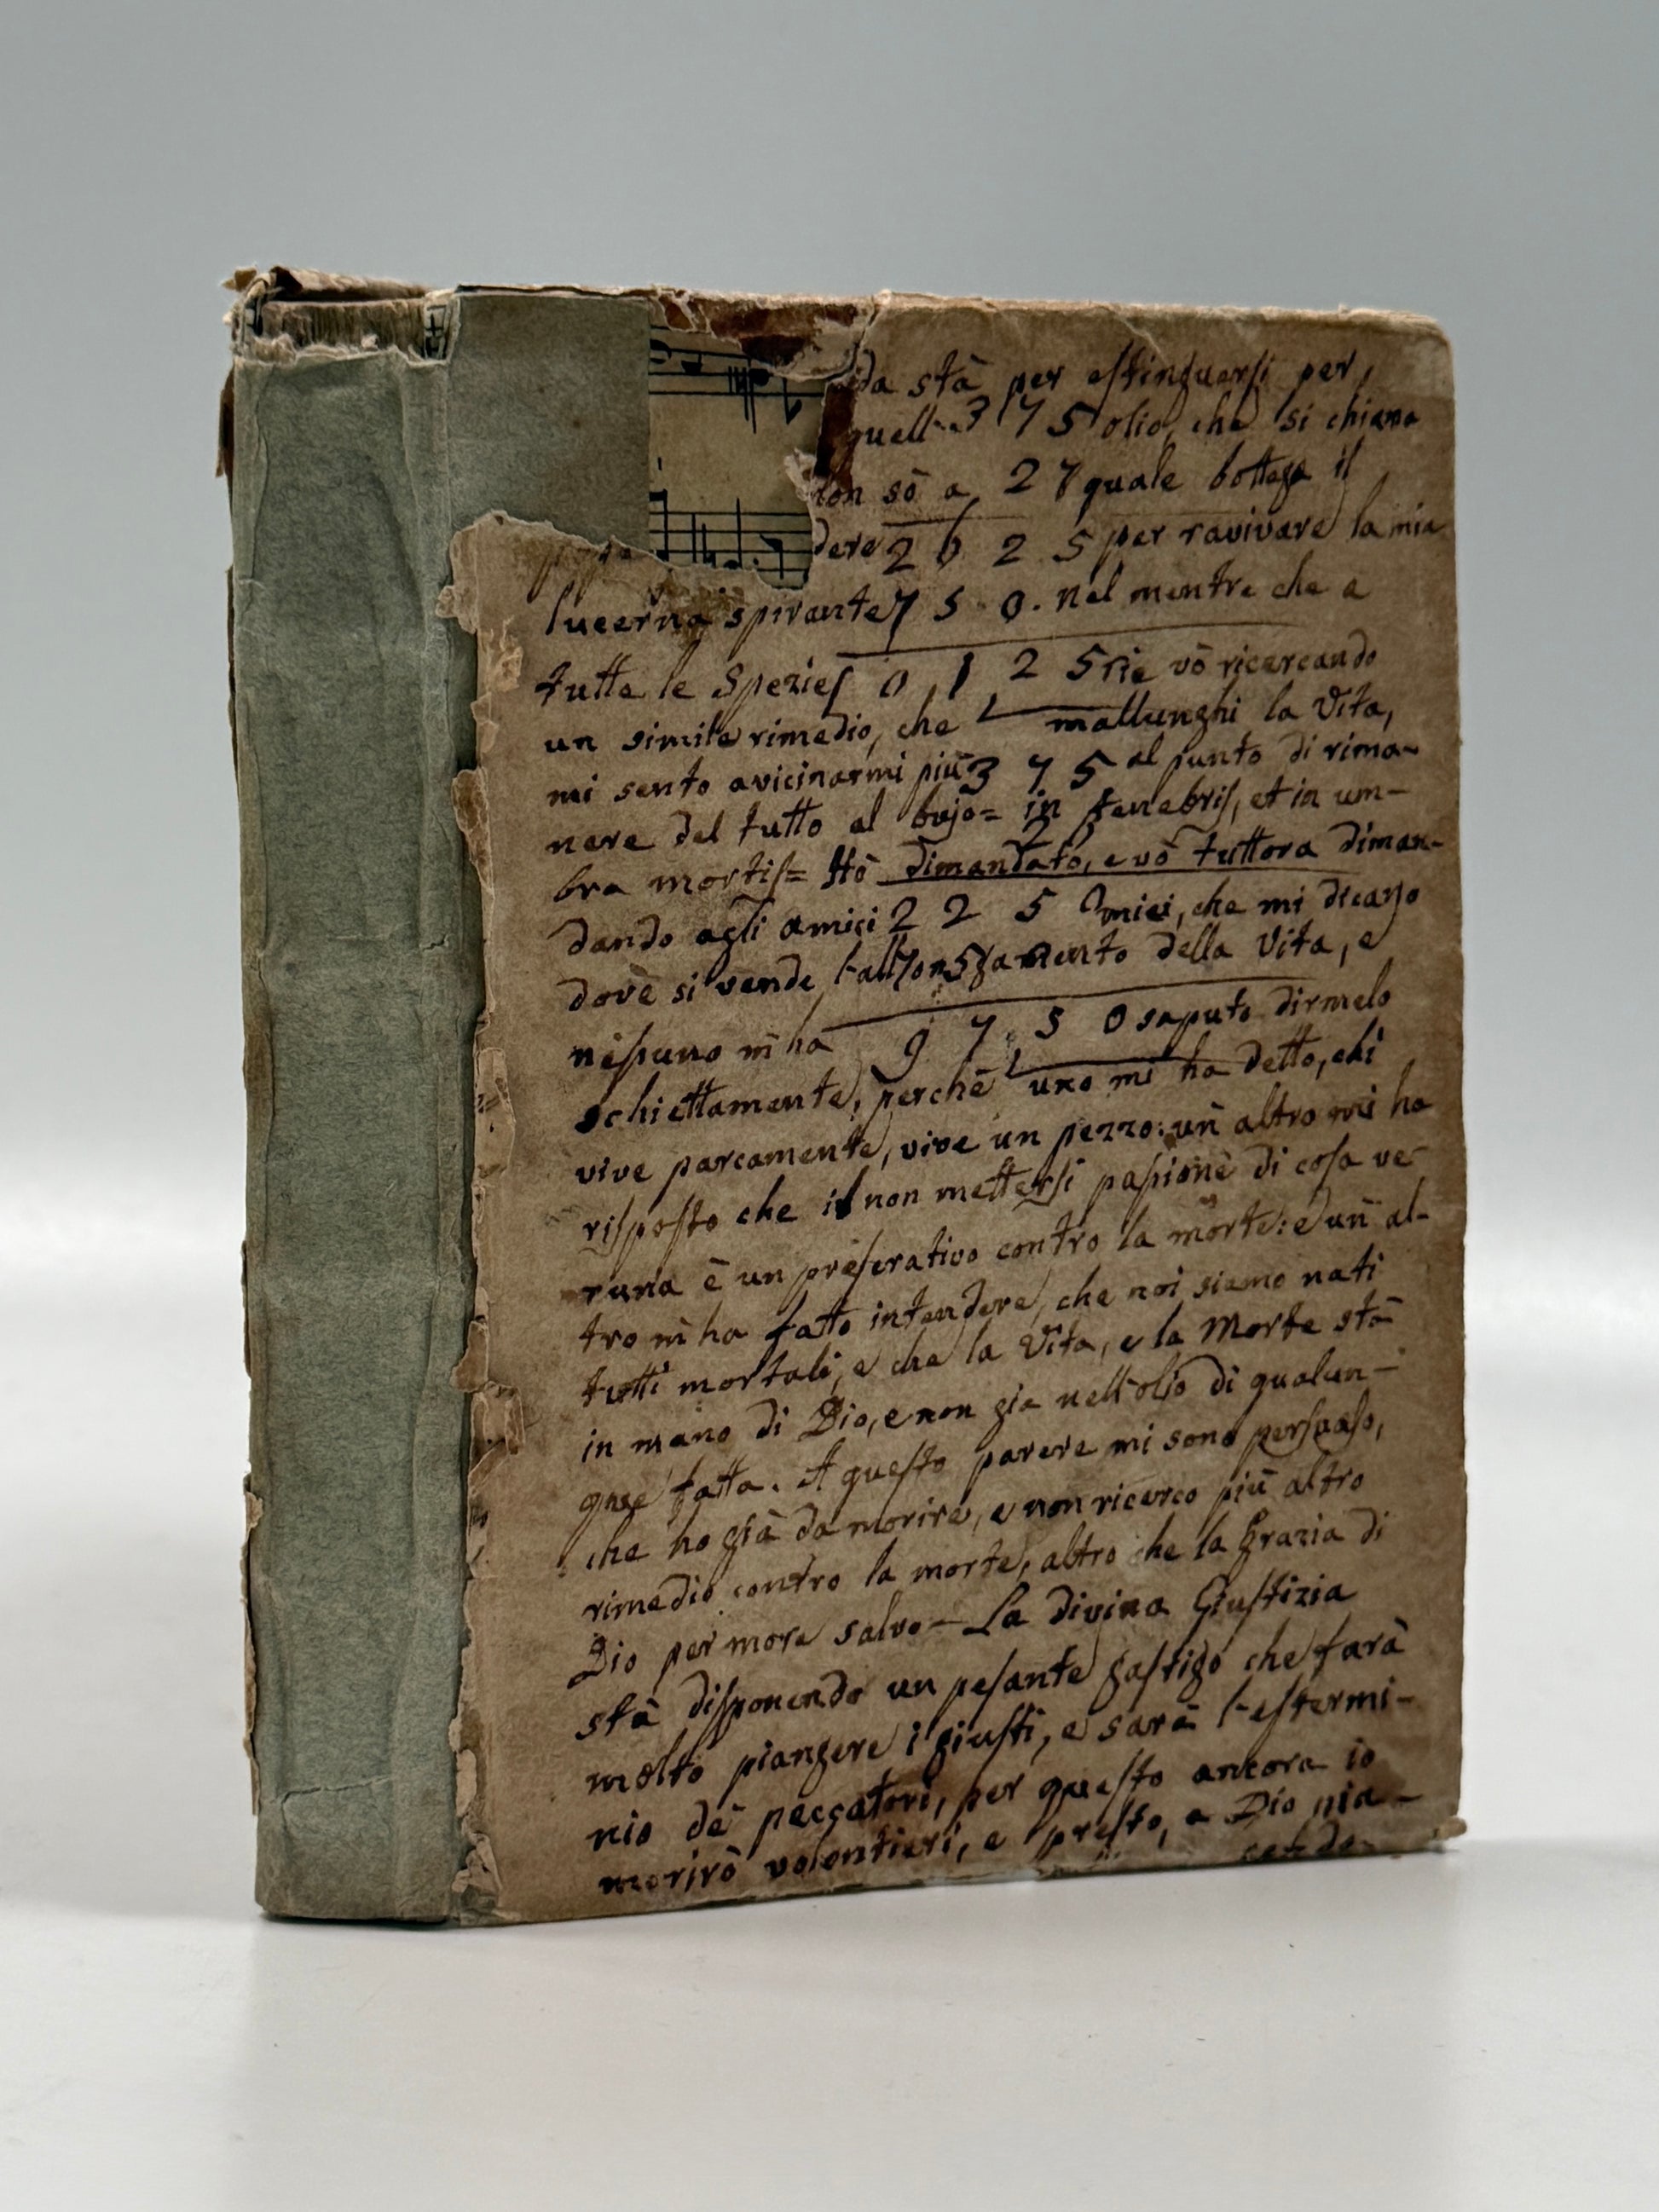 da stà per estinguersi per
quell 3 7 5 olio, che si chiama
non sò a 2 7 quale bottega il
dere 2 6 2 5 per ravivare la mia
lucerna spirante 7 5 0. nel mentre che a
tutte le Spezie 0 1 2 5 rie vò ricercando
un simile rimedio, che mallunghi la Vita,
mi sento avicinarmi più 3 7 5 al punto di rima-
nere del tutto al bujo= in tenebris, et in um-
bra mortis= Hò dimandato, e vò tuttora diman-
dando agli amici 2 2 5 Omici, che mi dicano
dovè si vende l'allongamento della Vita, e
nessuno m̄ ha 9 7 5 0 saputo dirmelo
schiettamente, perchè uno mi ha detto, chi
vive parcamente, vive un pezzo: un altro mi ha
risposto che il non mettersi passione di cosa ve-
runa è un preserativo contro la morte: e un al-
tro m̄ ha fatto intendere, che noi siamo nati
tutti mortali, e che la Vita, e la Morte stà
in mano di Dio, e non gia nell'olio di qualun-
que fatta. A questo parere mi sono persuaso,
che ho già da morire, e non ricerco più altro
rimedio contro la morte, altro che la Grazia di
Dio per more salvo- La divina Giustizia
stà disponendo un pesante gastigo che farà
molto piangere i giusti, e sarà l'estermi-
nio dè peccatori, per questo ancora io
morirò volontieri, e presto, a Dio pia-
cendo-